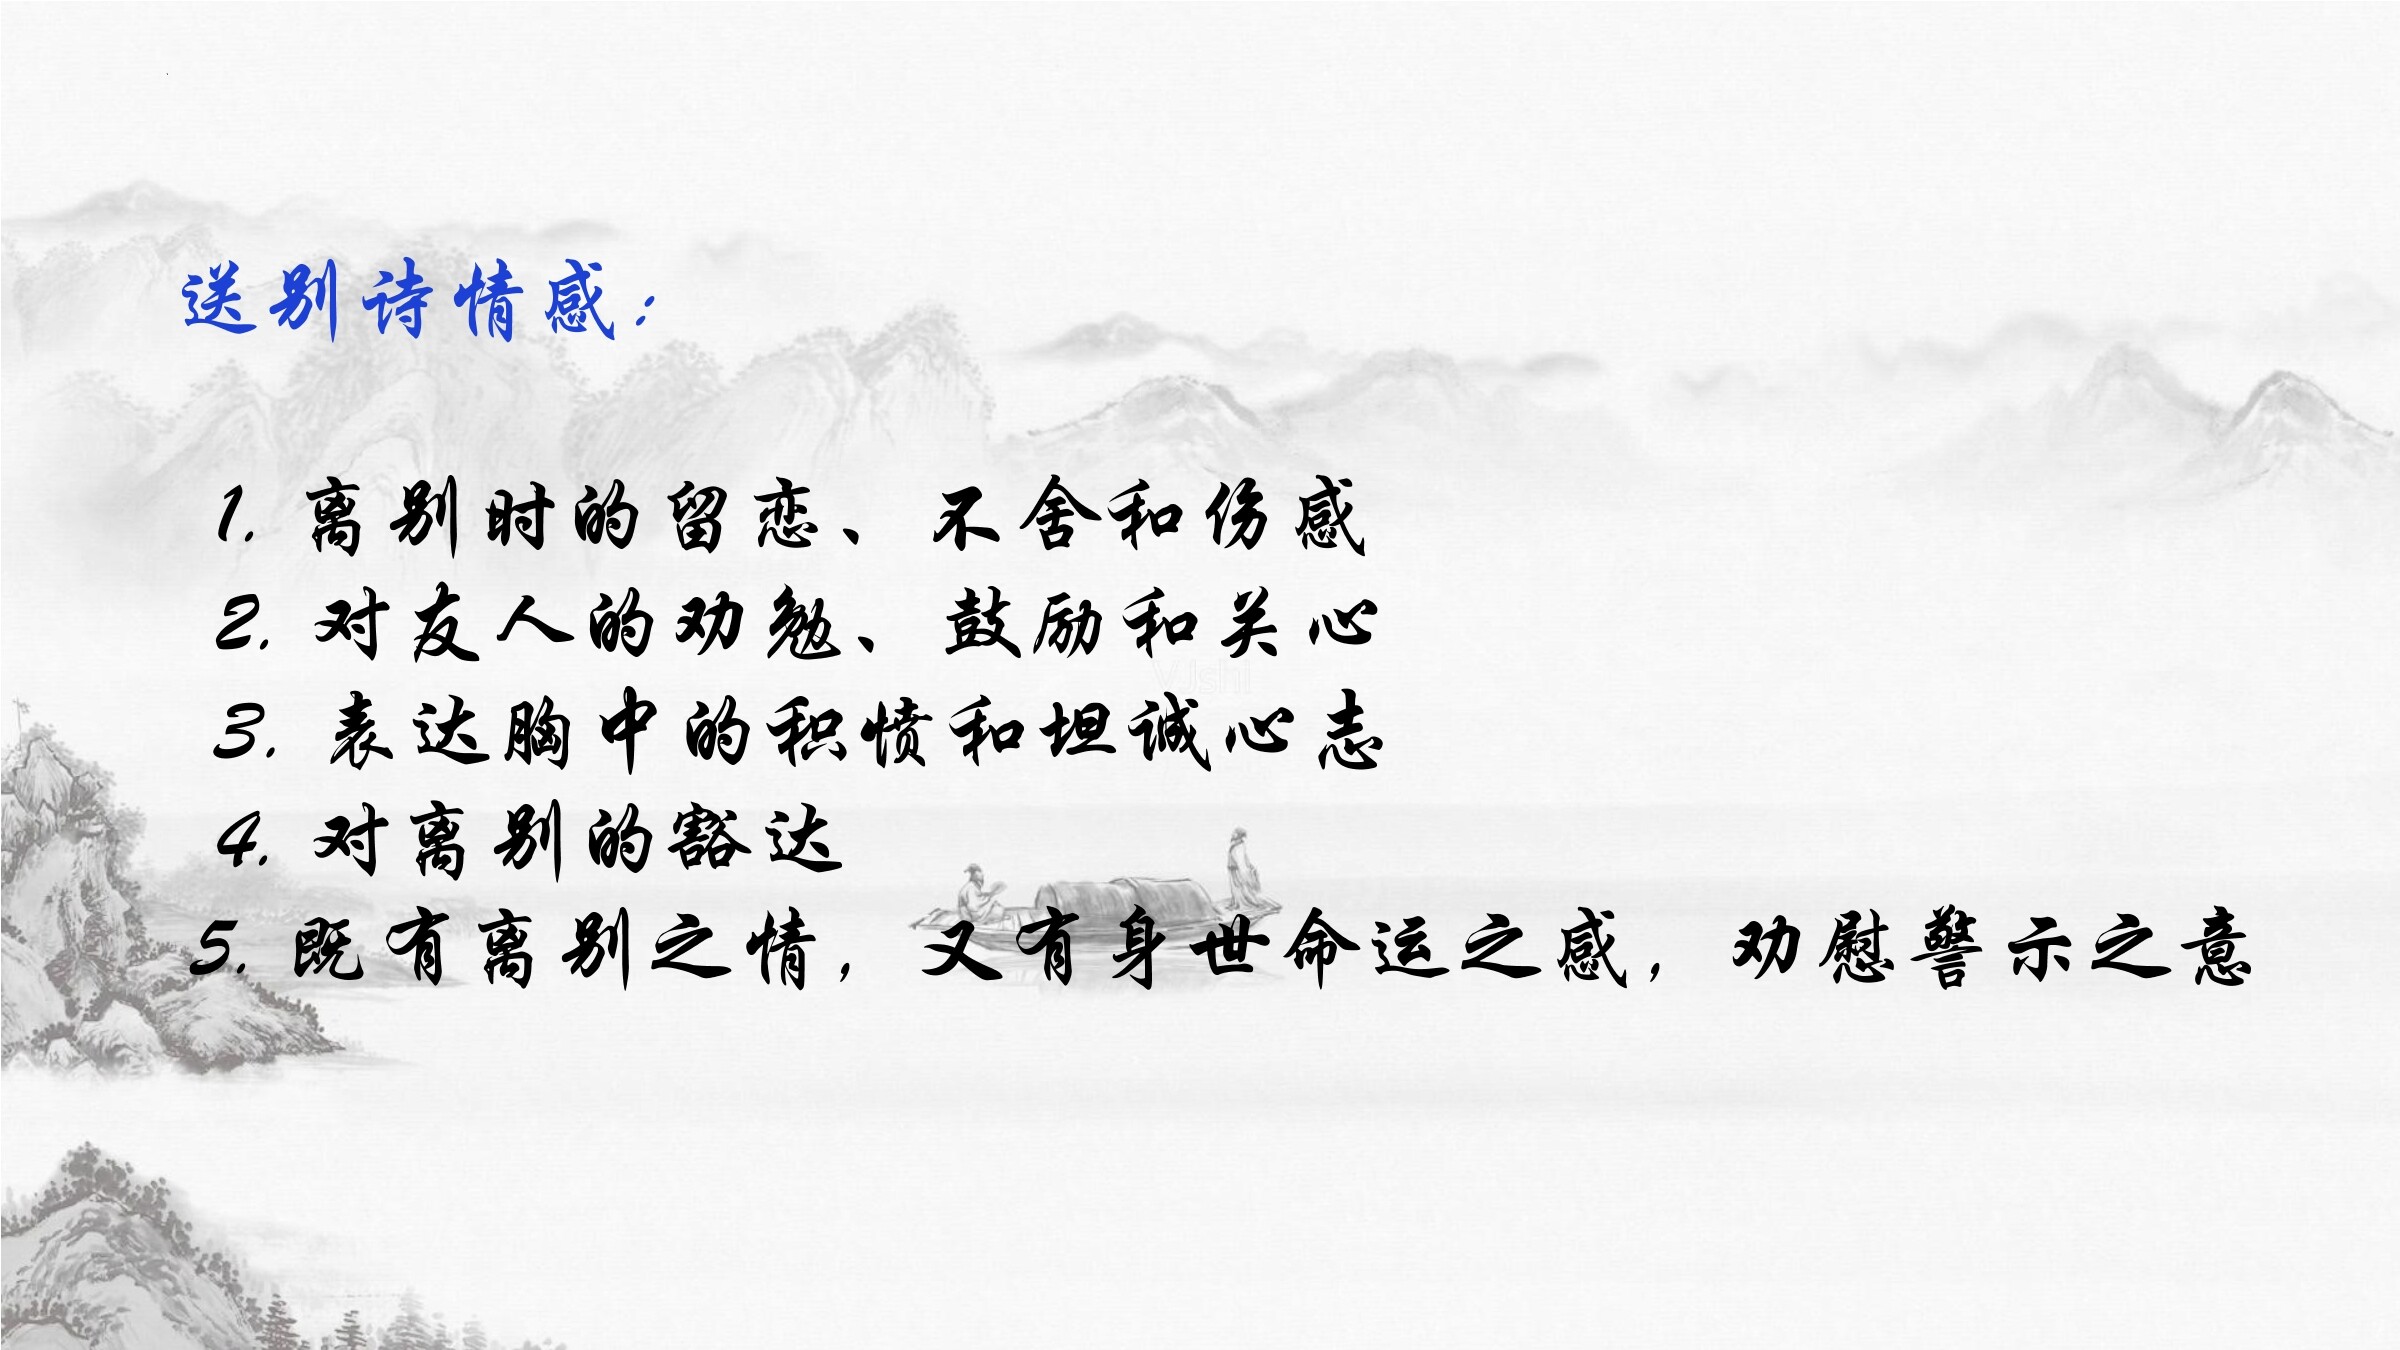 送别诗情感：
1. 离别时的留恋、不舍和伤感
2. 对友人的劝勉、鼓励和关心
3. 表达胸中的积愤和坦诚心志
4. 对离别的豁达
5. 既有离别之情，又有身世命运之感，劝慰警示之意